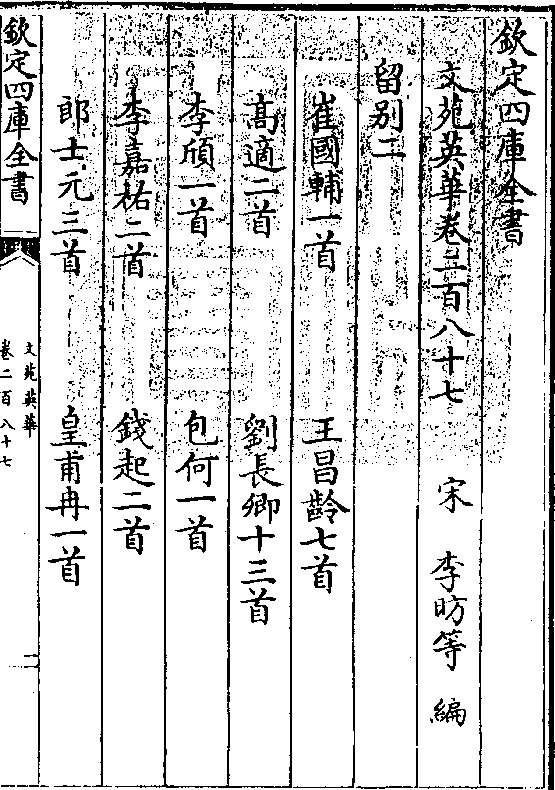 欽定四庫全書
文苑英華卷二百八十七 宋 李昉等 編
留别二
崔國輔一首 王昌齡七首
髙適二首 劉長卿十三首
李頎一首 包何一首
李嘉祐二首 錢起二首
郎士元三首 皇甫冉一首
欽定四庫全書 文苑英華 卷二百八十七 一